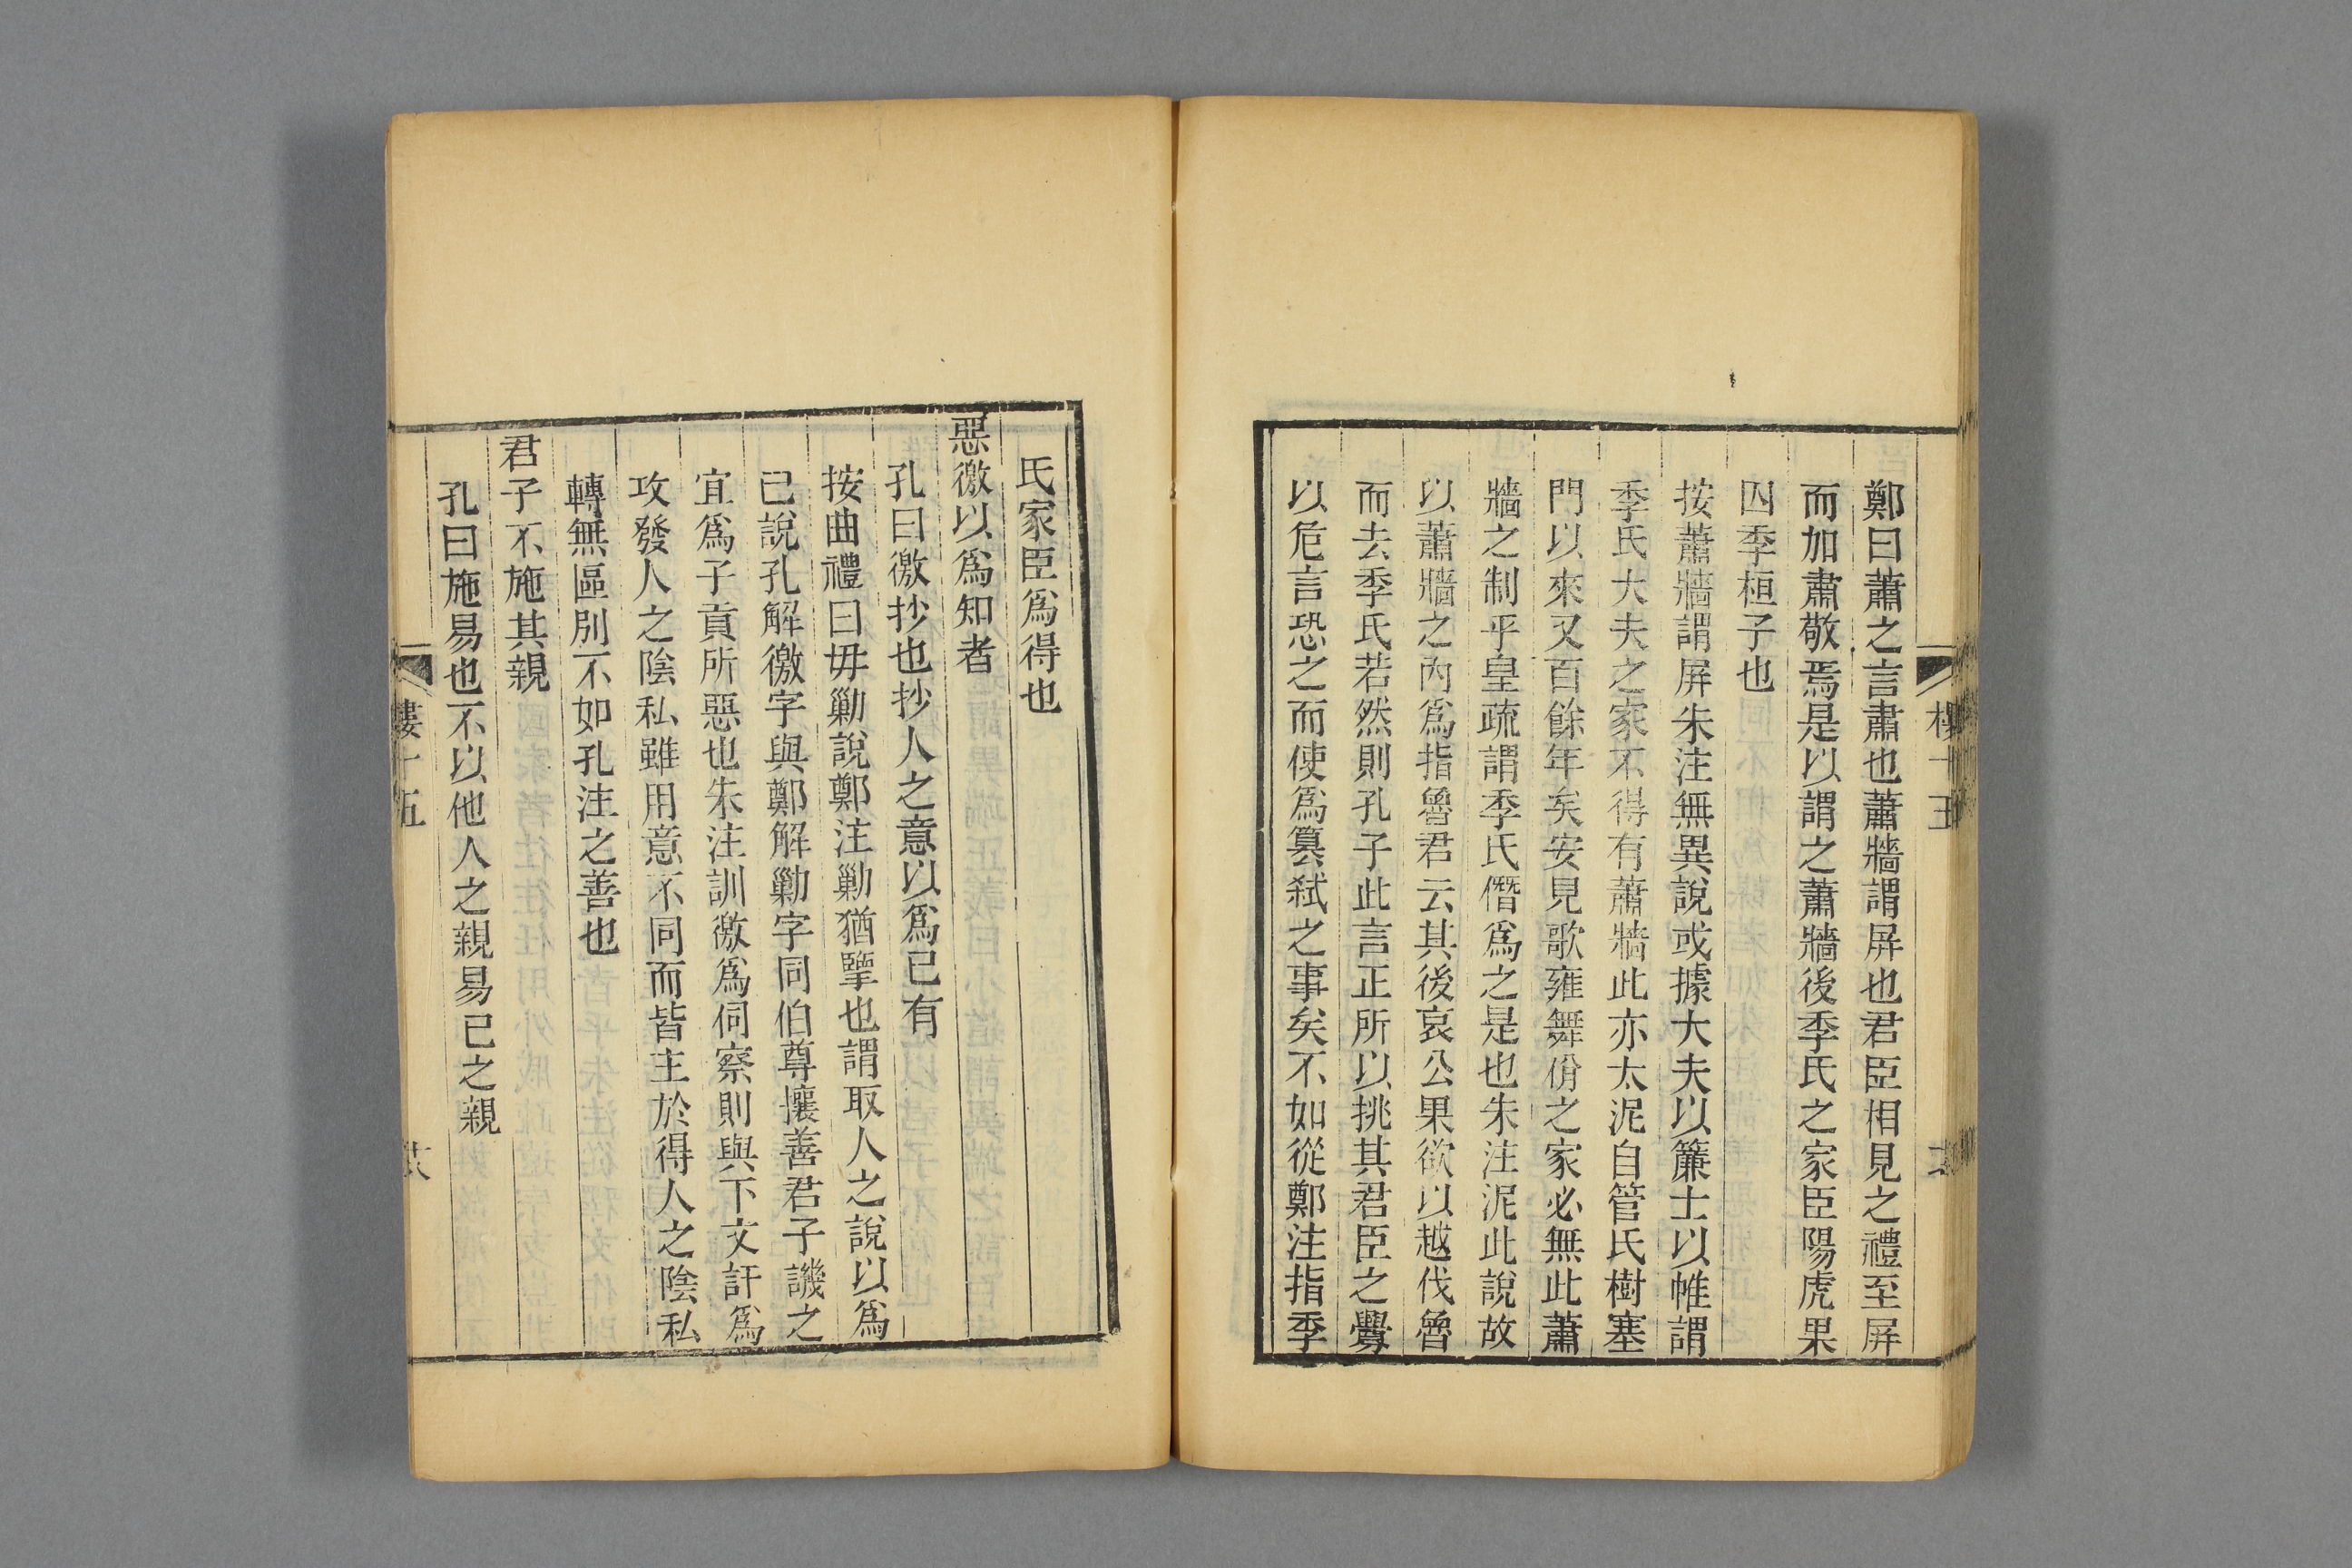 鄭曰蕭之言肅也蕭牆謂屏也君臣相見之禮至屏
而加肅敬焉是以謂之蕭牆後季氏之家臣陽虎果
囚季桓子也
按蕭牆謂屏朱注無異說或據大夫以簾士以帷謂
季氏大夫之家不得有蕭牆此亦太泥自管氏樹塞
門以來又百餘年矣安見歌雍舞佾之家必無此蕭
牆之制乎皇疏謂季氏僭爲之是也朱注泥此說故
以蕭牆之內爲指魯君云其後哀公果欲以越伐魯
而去季氏若然則孔子此言正所以挑其君臣之釁
以危言恐之而使爲篡弒之事矣不如從鄭注指季
氏家臣爲得也
惡徼以爲知者
孔曰徼抄也抄人之意以爲已有
按曲禮曰毋勦說鄭注勦猶擥也謂取人之說以爲
已說孔解徼字與鄭解勦字同伯尊攘善君子譏之
宜爲子貢所惡也朱注訓徼爲伺察則與下文訐爲
攻發人之陰私雖用意不同而皆主於得人之陰私
轉無區別不如孔注之善也
君子不施其親
孔曰施易也不以他人之親易已之親
樓十五